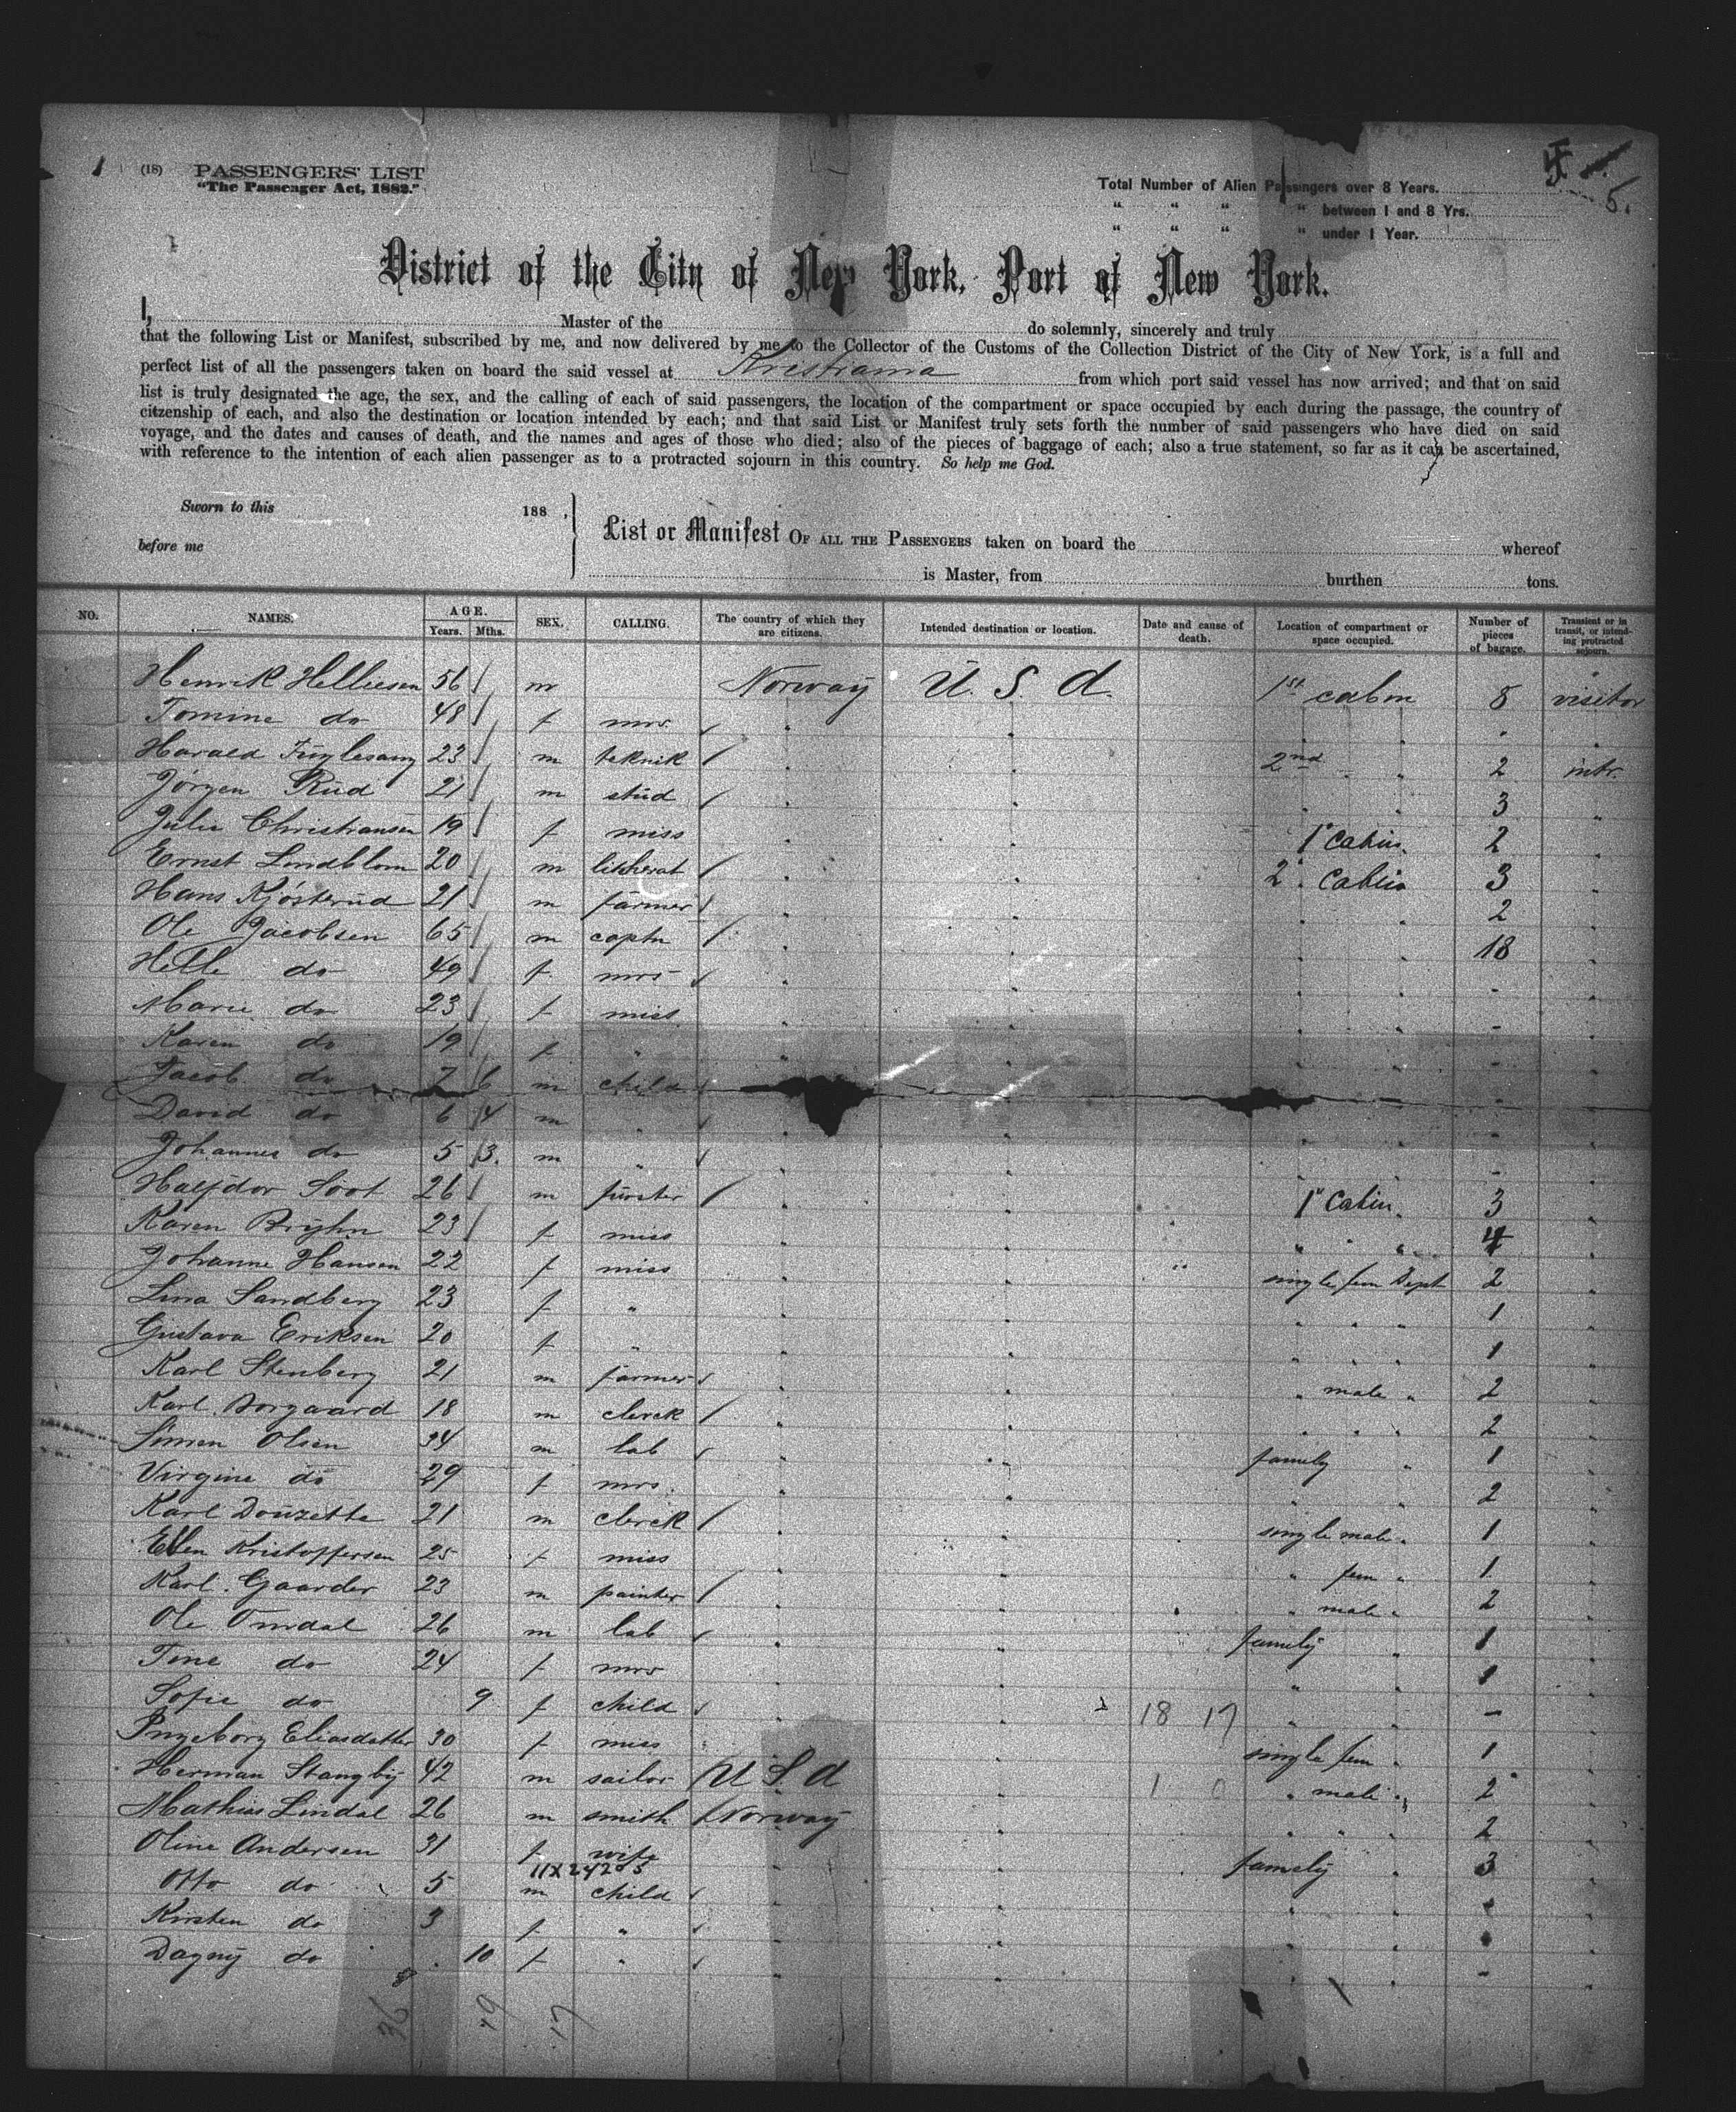 1 (18) PASSENGERS' LIST
"The Passenger Act, 1882."
Total Number of Alien Passingers over 8 Years.
" " " " between 1 and 8 Yrs.
" " " " under 1 Year.
5.
District of the City of New York, Port of New York.
I, Master of the do solemnly, sincerely and truly
that the following List or Manifest, subscribed by me, and now delivered by me to the Collector of the Customs of the Collection District of the City of New York, is a full and
perfect list of all the passengers taken on board the said vessel at Kristiania from which port said vessel has now arrived; and that on said
list is truly designated the age, the sex, and the calling of each of said passengers, the location of the compartment or space occupied by each during the passage, the country of
citzenship of each, and also the destination or location intended by each; and that said List or Manifest truly sets forth the number of said passengers who have died on said
voyage, and the dates and causes of death, and the names and ages of those who died; also of the pieces of baggage of each; also a true statement, so far as it can be ascertained,
with reference to the intention of each alien passenger as to a protracted sojourn in this country. So help me God.
Sworn to this 188 ,
before me
List or Manifest OF ALL THE PASSENGERS taken on board the whereof
is Master, from burthen tons.
NO. NAMES. AGE. Years. Mths. SEX. CALLING. The country of which they are citizens. Intended destination or location. Date and cause of death. Location of compartment or space occupied. Number of pieces of bagage. Transient or in transit, or intending protracted sojourn.
Henrik Helliesen 56 m Norway U. S. A. 1st cabin 8 visitor
Tomine do 48 f mrs " " " " "
Harald Fuglesang 23 m teknik " " 2nd " " 2 intr.
Jørgen Rud 21 m stud " " " " 3 "
Julie Christiansen 19 f miss " " 1" Cabin. 2 "
Ernst Lindblom 20 m litherat " " 2" Cabin 3 "
Hans Kjösterud 21 m farmer " " " " 2 "
Ole Jacobsen 65 m captn " " " " 18 "
Helle do 49 f mrs " " " " - "
Marie do 23 f miss " " " " - "
Karen do 19 f " " " " " - "
Jacob do 7 6 m child " " " " - "
David do 6 4 m " " " " " - "
Johannes do 5 3. m " " " " " - "
Halfdor Soot 26 m forster " " 1" Cabin. 3 "
Karen Bryhn 23 f miss " " " " " 4 "
Johanne Hansen 22 f miss " " single fem Dept 2 "
Lina Sandberg 23 f " " " " " " 1 "
Gustava Eriksen 20 f " " " " " " 1 "
Karl Stenberg 21 m farmer " " " male " 2 "
Karl Borgaard 18 m clerck " " " " " 2 "
Simen Olsen 34 m lab " " family " 1 "
Virgine do 29 f mrs. " " " " 2 "
Karl Douzette 21 m clerck " " single male " 1 "
Ellen Kristoffersen 25 f miss " " " fem " 1 "
Karl Gaarder 23 m painter " " " male " 2 "
Ole Omdal 26 m lab " " family " 1 "
Tine do 24 f mrs " " " " 1 "
Sofie do 9 f child " " 18 17 " " - "
Ingeborg Eliasdatter 30 f miss " " single fem " 1 "
Herman Stangby 42 m sailor U S A " 1 0 " male " 2 "
Mathias Lindal 26 m smith Norway " " " " 2 "
Oline Andersen 31 f wife " " family " 3 "
11X24203
Otto do 5 m child " " " " "
Kirsten do 3 f " " " " " "
Dagny do 10 f " " " " " - "
36 19 17